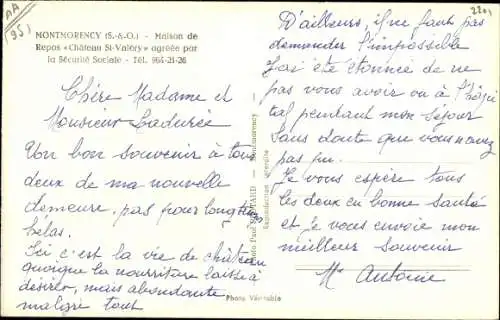 AA
95)
2201
MONTMORENCY (S.-&-O.) - Maison de
Repos « Château St-Valéry » agréée par
la Sécurité Sociale - Tél. 964-21-26
Chère Madame et
Monsieur Ladurée
Un bon souvenir à tous
deux de ma nouvelle
demeure, pas pour longtemps
hélas.
Ici c'est la vie de château
quoique la nourriture laisse à
désirer, mais abondante
malgré tout
D'ailleurs, il ne faut pas
demander l'impossible
J'ai été étonnée de ne
pas vous avoir vu à l'hôpi
tal pendant mon séjour
Sans doute que vous n'avez
pas pu.
Je vous espère tous
les deux en bonne santé
et je vous envoie mon
meilleur souvenir
Me Antoine
Photo Paul - Montmorency
Reproduction interdite
Photo Véritable